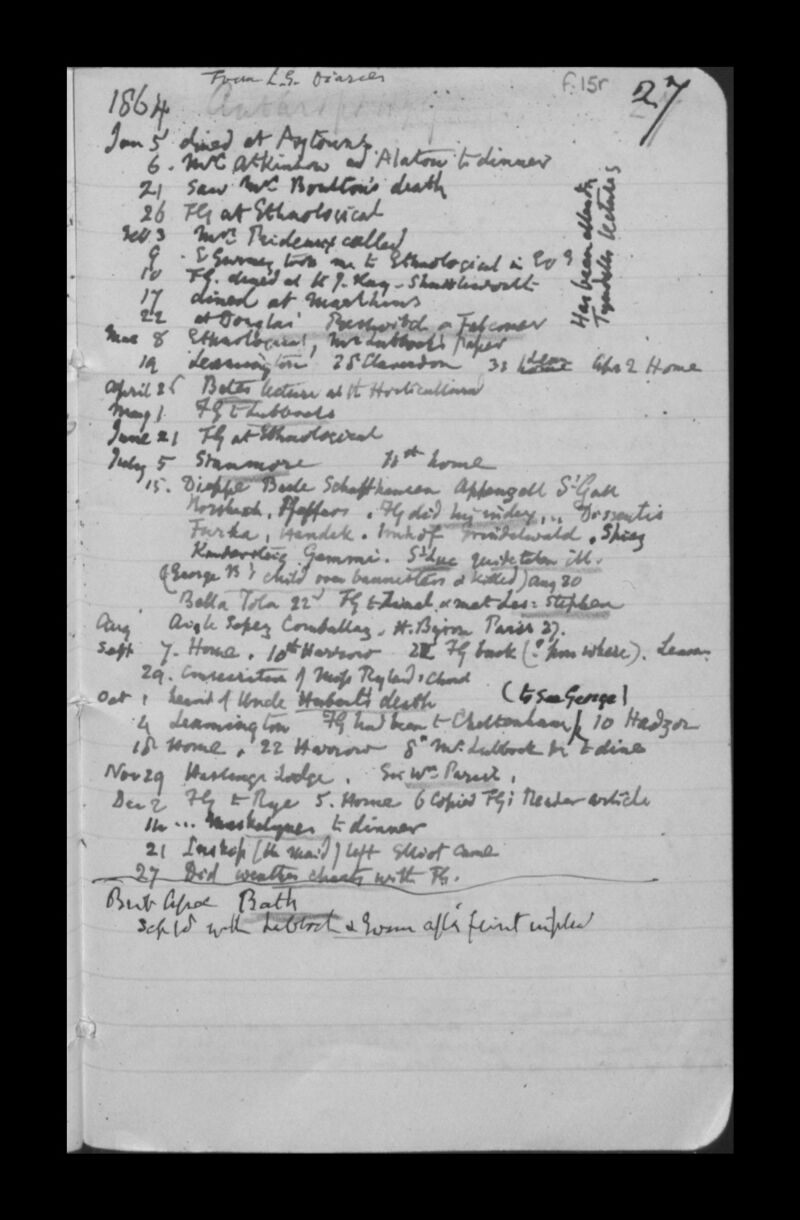 From L.G. Diaries
f.15r
27
1864
Jan 5 dined at Aytouns
6. Mr Atkinson and Alston to dinner
21 Saw Mr Boulton's death
26 FG at Ethnological
Feb 3 Mrs Prideaux called
9 S Gurney took me to Ethnological in
10 FG. dined at K J. Kay-Shuttleworth
17 dined at
22 at Douglas' Prestwitch & Falconer
Has been attending
Tyndalls lectures
Mar 8 Ethnological, Mr Lubbock's paper
19 Leamington 28 Claverdon 31 Leam Apr 2 Home
April 26 Bates lecture at the Horticultural
May 1 FG to Lubbocks
June 21 FG at Ethnological
July 5 Stanmore home
15. Dieppe Basle Schaffhausen Appenzell St Gall
Pfeffers. FG did his index, .. Dissentis
Furka, Handek. Imhof Grindelwald. Spiez
Kandersteg Gemmi. St Luc guide taken ill.
(George B's child over bannisters & killed) Aug 20
Bella Tola 22nd FG to Zinal & met Les: Stephen
Aug Aigle Sepey Comballaz. H. Byron Paris 27.
Sept 7. Home. 10th Harrow FG back (? from where). Leam.
29. Consecration of Miss Ryland's Church
Oct 1 heard of Uncle Hubert's death (to see George)
4 Leamington FG had been to Cheltenham 10 Hadzor
18 Home. 22 Harrow Mr Lubbock to dine
Nov 29 Hastings Lodge. Sir Wm Parish.
Dec 2 FG to Rye 5. Home 6 Copied FG's Reader article
14 ... Maskelynes to dinner
21 Inskip (the maid) left Elliot came
27 Did weather charts with FG.
Brit Assoc Bath
with Lubbock & Evans after flint implem